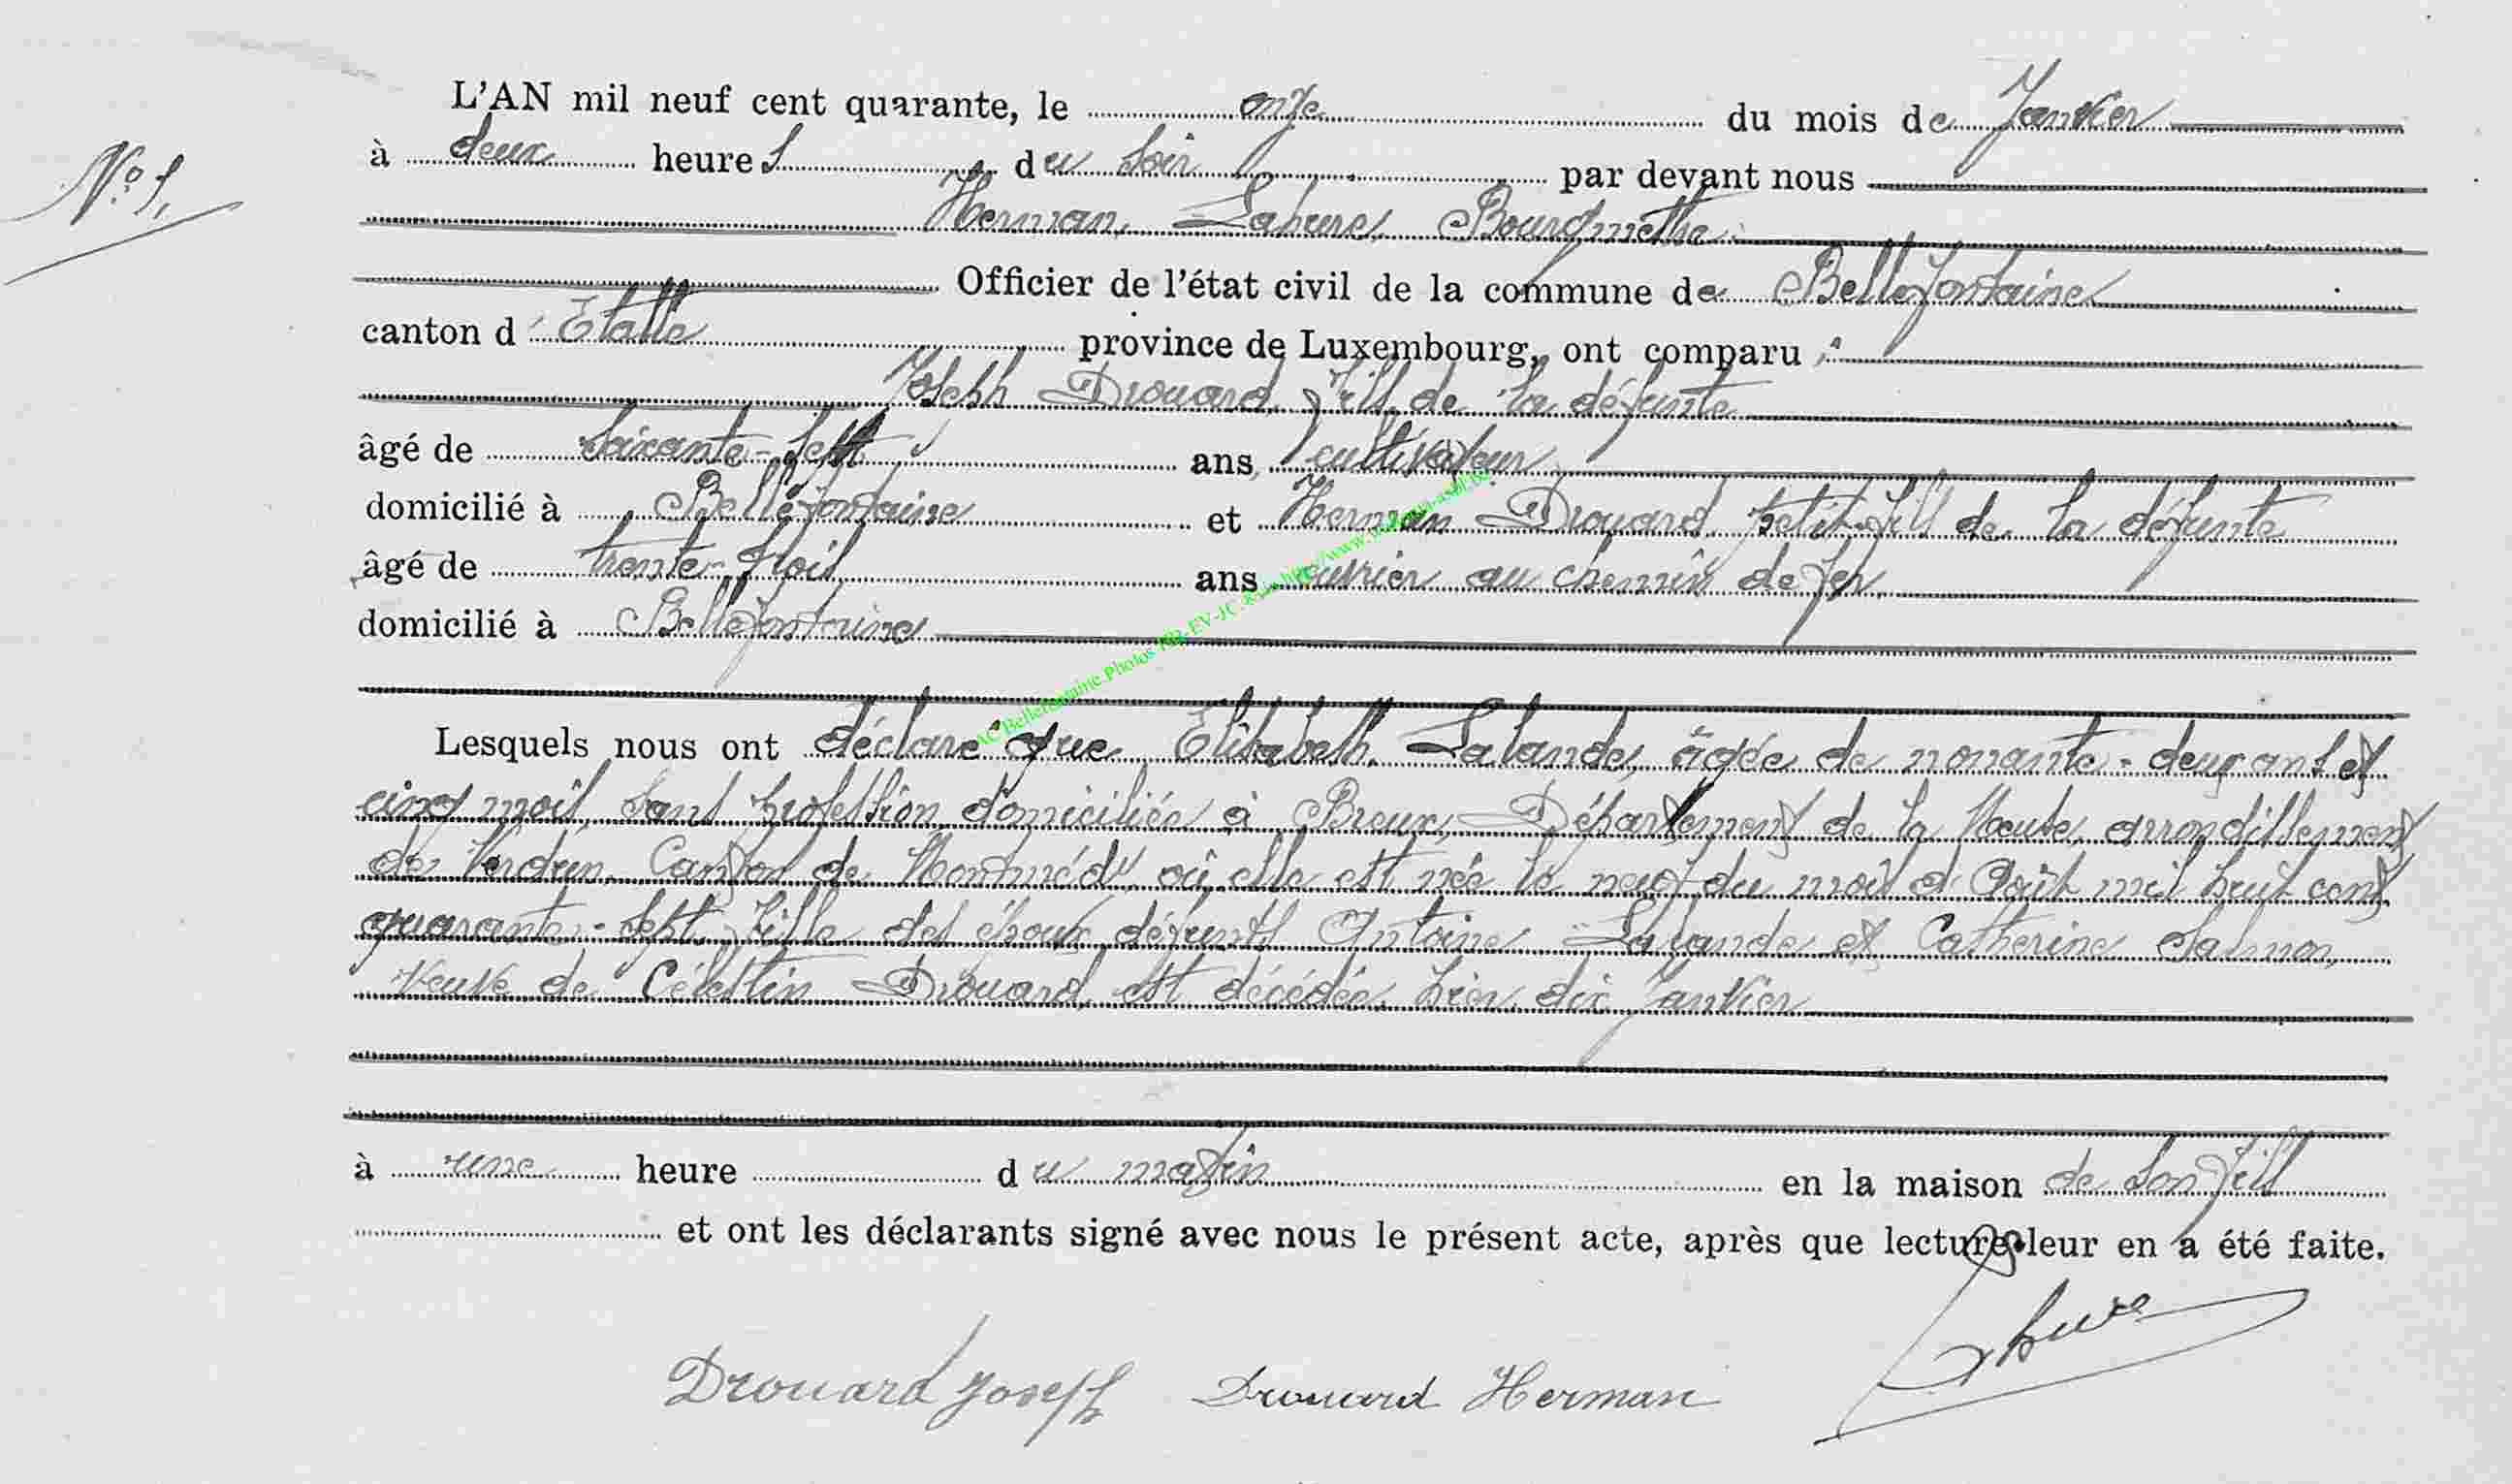 L'AN mil neuf cent quarante, le onze du mois de Janvier
à deux heures du soir par devant nous
N° 1.
Herman Lahure, Bourgmestre
Officier de l'état civil de la commune de Bellefontaine
canton d'Etalle province de Luxembourg, ont comparu :
Joseph Drouard, fils de la défunte
âgé de soixante-sept ans, cultivateur
domicilié à Bellefontaine et Herman Drouard, petit-fils de la défunte
âgé de trente-trois ans ouvrier au chemin de fer
domicilié à Bellefontaine
AC Bellefontaine Photos
Lesquels nous ont déclaré que Elisabeth Lalande, âgée de nonante-deux ans et
cinq mois, sans profession, domiciliée à Breux, Département de la Meuse, arrondissement
de Verdun, Canton de Montmédy, où elle est née le neuf du mois d'Août mil huit cent
quarante-sept, fille des époux défunts Antoine Lalande et Catherine Salmon,
veuve de Célestin Drouard, est décédée hier dix janvier
à une heure du matin en la maison de son fils
et ont les déclarants signé avec nous le présent acte, après que lecture leur en a été faite.
Drouard Joseph Drouard Herman Lahure